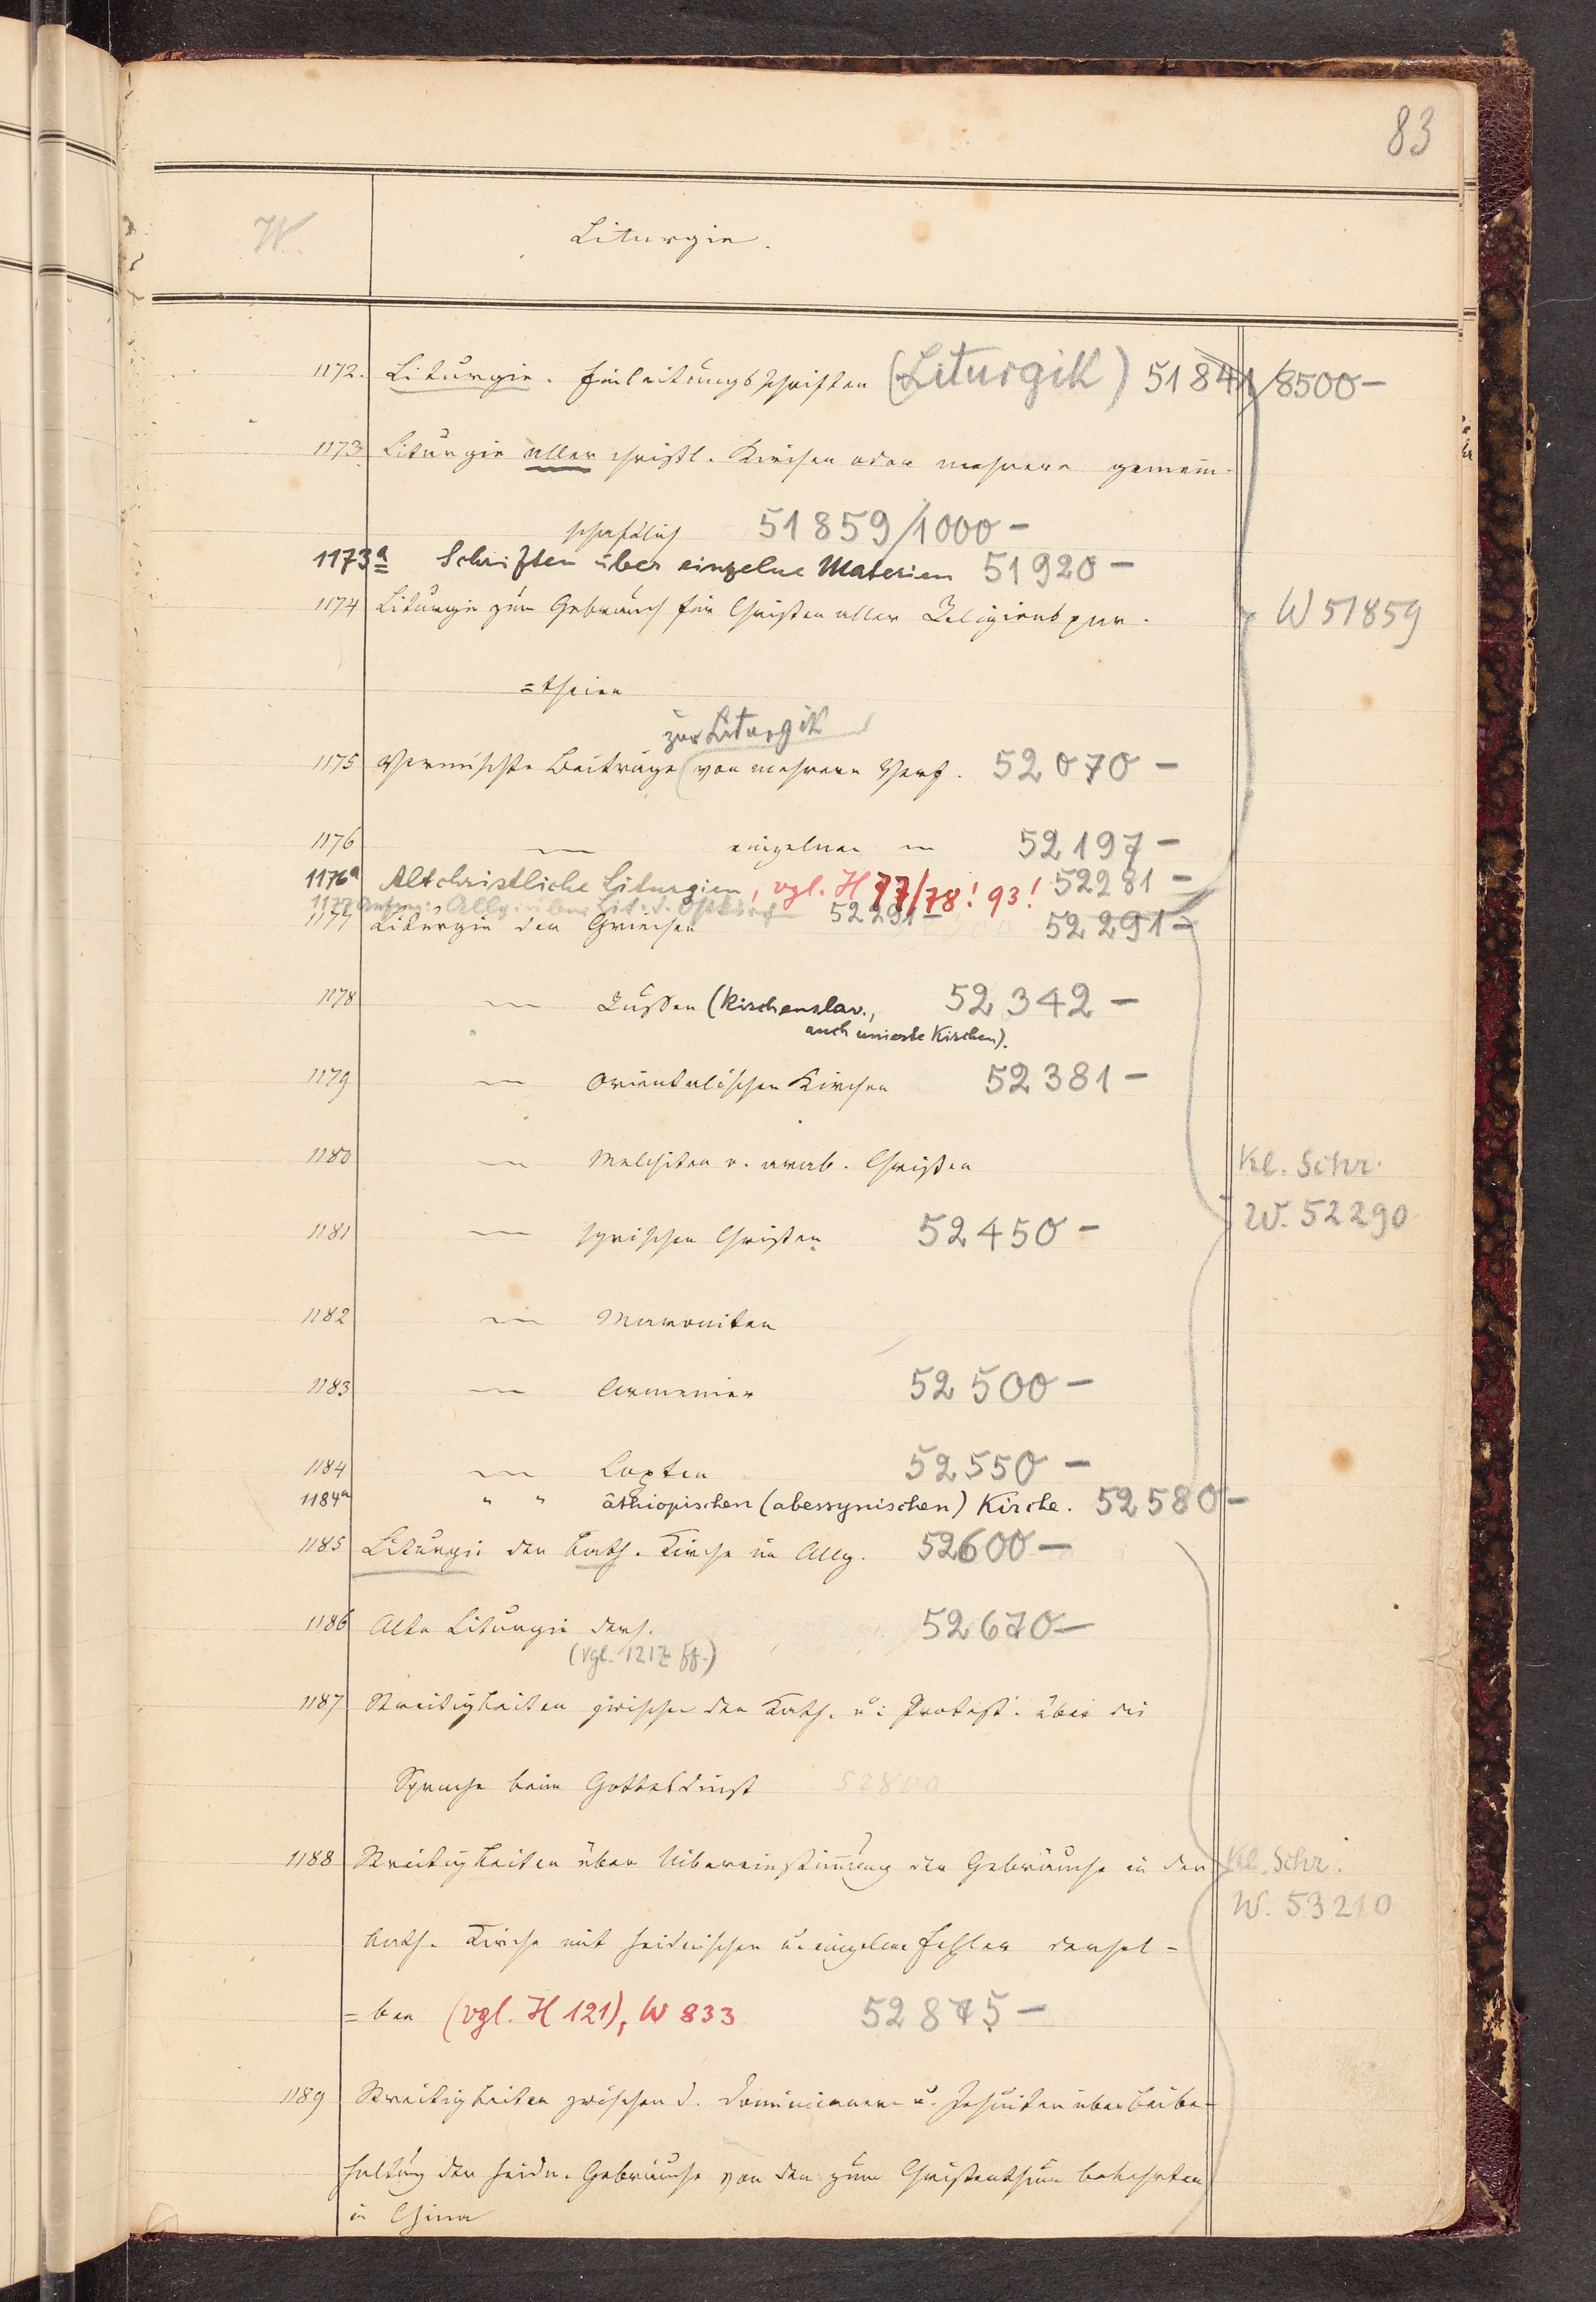 83
W Liturgie.
1172. Liturgie. Einleitungsschriften (Liturgik) 51841/8500-
1173 Liturgie aller christl. Kirchen oder mehrere gemein-
schaftlich 51859/1000-
1173a Schriften über einzelne Materien 51920-
1174 Liturgie zum Gebrauch für Christen aller Religionspar-
=theien
W 51859
zur Liturgik
1175 Vermischte Beiträge (von mehrern Verf. 52070-
1176 — einzelnen — 52197-
1176a Altchristliche Liturgien, vgl. H 77/78! 93! 52281-
1177 Anfang: Allg. über Lit. d. Ostkirche 52291-
1177 Liturgie der Griechen 52291-
1178 — Russen (Kirchenslav., 52342-
auch unierte Kirchen).
1179 — Orientalischen Kirchen 52381-
1180 — Melchiten u. arab. Christen
Kl. Schr.
W. 52290
1181 — syrischen Christen 52450-
1182 — Maroniten
1183 — Armenier 52500-
1184 — Copten 52550-
1184a " " äthiopischen (abessynischen) Kirche. 52580-
1185 Liturgie der kath. Kirche im Allg. 52600-
1186 Alte Liturgie ders. 52670-
(vgl. 1217 ff.)
1187 Streitigkeiten zwischen den Kath. u. Protest. über die
Sprache beim Gottesdienst 52800
1188 Streitigkeiten über Uibereinstimmung der Gebräuche in der
Kl. Schr.
W. 53210
kath. Kirche mit heidnischen u. einzelne Fehler dersel-
=ben (vgl. H 121), W 833 52875-
1189 Streitigkeiten zwischen d. Dominicanern u. Jesuiten über Beibe-
haltung der heidn. Gebräuche von den zum Christenthum bekehrten
in China